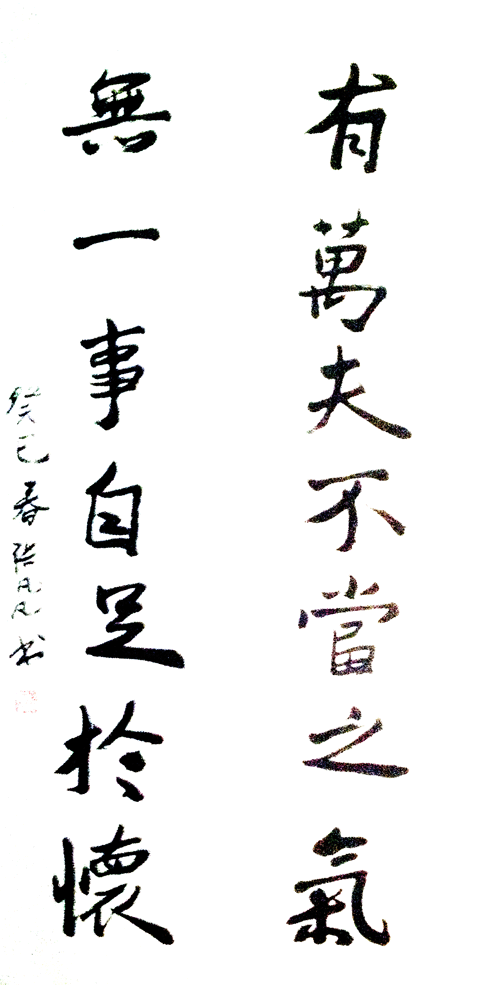 有萬夫不當之氣
無一事自足於懷
癸巳春張凡凡书